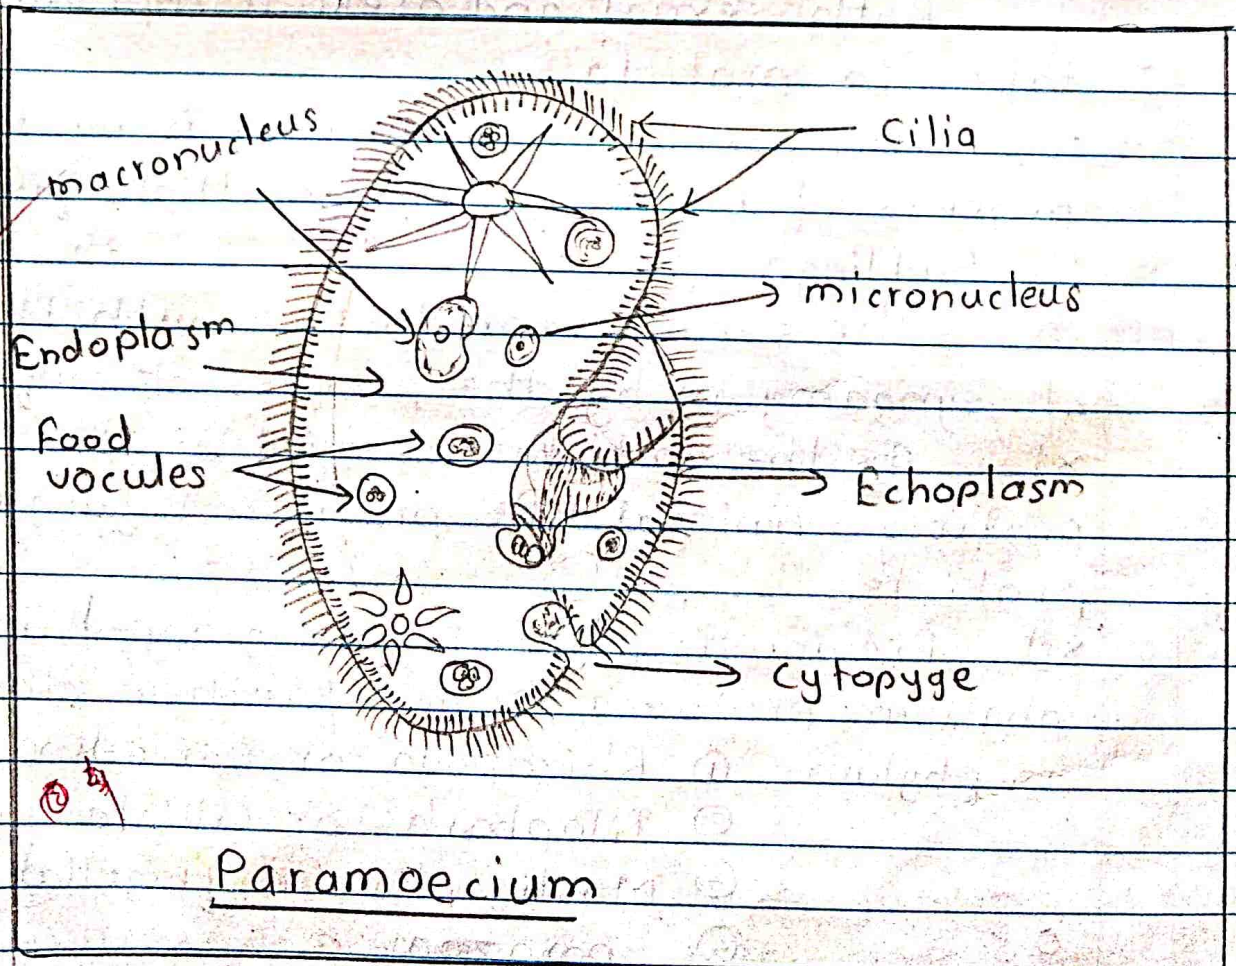 macronucleus
Cilia
micronucleus
Endoplasm
food
vocules
Echoplasm
Cytopyge
Paramoecium